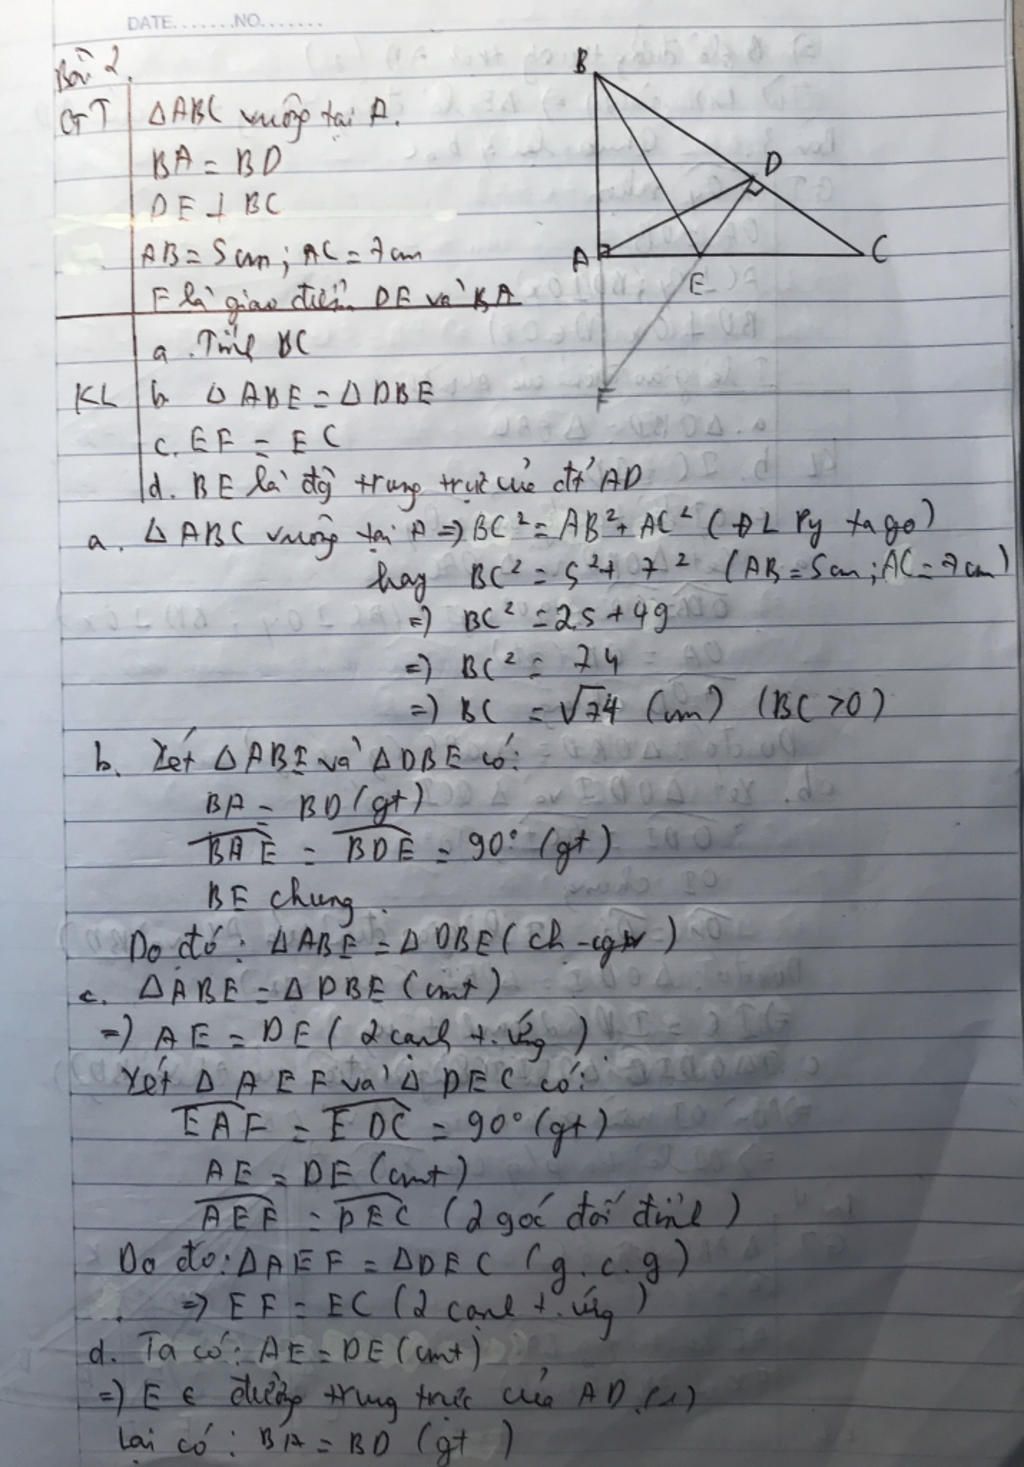 DATE.......NO.......
Bài 2.
GT ΔABC vuông tại A.
BA = BD
DE ⊥ BC
AB = 5 cm ; AC = 7 cm
F là giao điểm DE và BA
a. Tính BC
KL b. ΔABE = ΔDBE
c. EF = EC
d. BE là đg trung trực của đt AD
B
D
A
C
E
F
a. ΔABC vuông tại A => BC² = AB² + AC² (ĐL Py ta go)
hay BC² = 5² + 7² (AB = 5 cm ; AC = 7 cm)
=> BC² = 25 + 49
=> BC² = 74
=> BC = √74 (cm) (BC > 0)
b. Xét ΔABE và ΔDBE có:
BA = BD (gt)
BAE = BDE = 90° (gt)
BE chung.
Do đó: ΔABE = ΔDBE (ch - cgv)
c. ΔABE = ΔDBE (cmt)
=> AE = DE (2 cạnh t. ứng)
Xét ΔAEF và ΔDEC có:
EAF = EDC = 90° (gt)
AE = DE (cmt)
AEF = DEC (2 góc đối đỉnh)
Do đó: ΔAEF = ΔDEC (g.c.g)
=> EF = EC (2 cạnh t. ứng)
d. Ta có: AE = DE (cmt)
=> E ∈ đường trung trực của AD (1)
Lại có: BA = BD (gt)